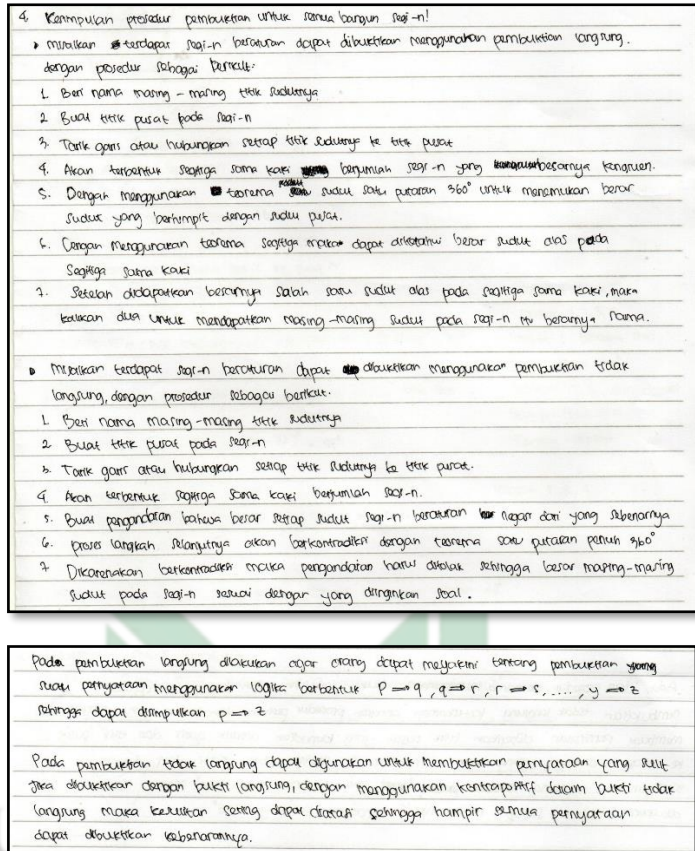 4. Kesimpulan prosedur pembuktian untuk semua bangun segi-n!
• misalkan terdapat segi-n beraturan dapat dibuktikan menggunakan pembuktian langsung.
dengan prosedur sebagai berikut:
1. Beri nama masing-masing titik sudutnya
2 Buat titik pusat pada segi-n
3. Tarik garis atau hubungkan setiap titik sudutnya ke titik pusat
4. Akan terbentuk segitiga sama kaki berjumlah segi-n yang besarnya kongruen.
5. Dengan menggunakan teorema sudut satu putaran 360° untuk menemukan besar
sudut yang berhimpit dengan sudut pusat.
6. Dengan menggunakan teorema segitiga maka dapat diketahui besar sudut alas pada
segitiga sama kaki
7. Setelah didapatkan besarnya salah satu sudut alas pada segitiga sama kaki, maka
kalikan dua untuk mendapatkan masing-masing sudut pada segi-n itu besarnya sama.
• misalkan terdapat segi-n beraturan dapat dibuktikan menggunakan pembuktian tidak
langsung, dengan prosedur sebagai berikut.
1. Beri nama masing-masing titik sudutnya
2 Buat titik pusat pada segi-n
3. Tarik garis atau hubungkan setiap titik sudutnya ke titik pusat.
4. Akan terbentuk segitiga sama kaki berjumlah segi-n.
5. Buat pengandaian bahwa besar setiap sudut segi-n beraturan negasi dari yang sebenarnya
6. proses langkah selanjutnya akan berkontradiksi dengan teorema satu putaran penuh 360°
7 Dikarenakan berkontradiksi maka pengandaian harus ditolak sehingga besar masing-masing
sudut pada segi-n sesuai dengan yang diinginkan soal.
Pada pembuktian langsung dilakukan agar orang dapat meyakini tentang pembuktian
suatu pernyataan menggunakan logika berbentuk P ⇒ q, q ⇒ r, r ⇒ s, ...., y ⇒ z
sehingga dapat disimpulkan p ⇒ z
Pada pembuktian tidak langsung dapat digunakan untuk membuktikan pernyataan yang sulit
jika dibuktikan dengan bukti langsung, dengan menggunakan kontrapositif dalam bukti tidak
langsung maka kesulitan sering dapat diatasi sehingga hampir semua pernyataan
dapat dibuktikan kebenarannya.